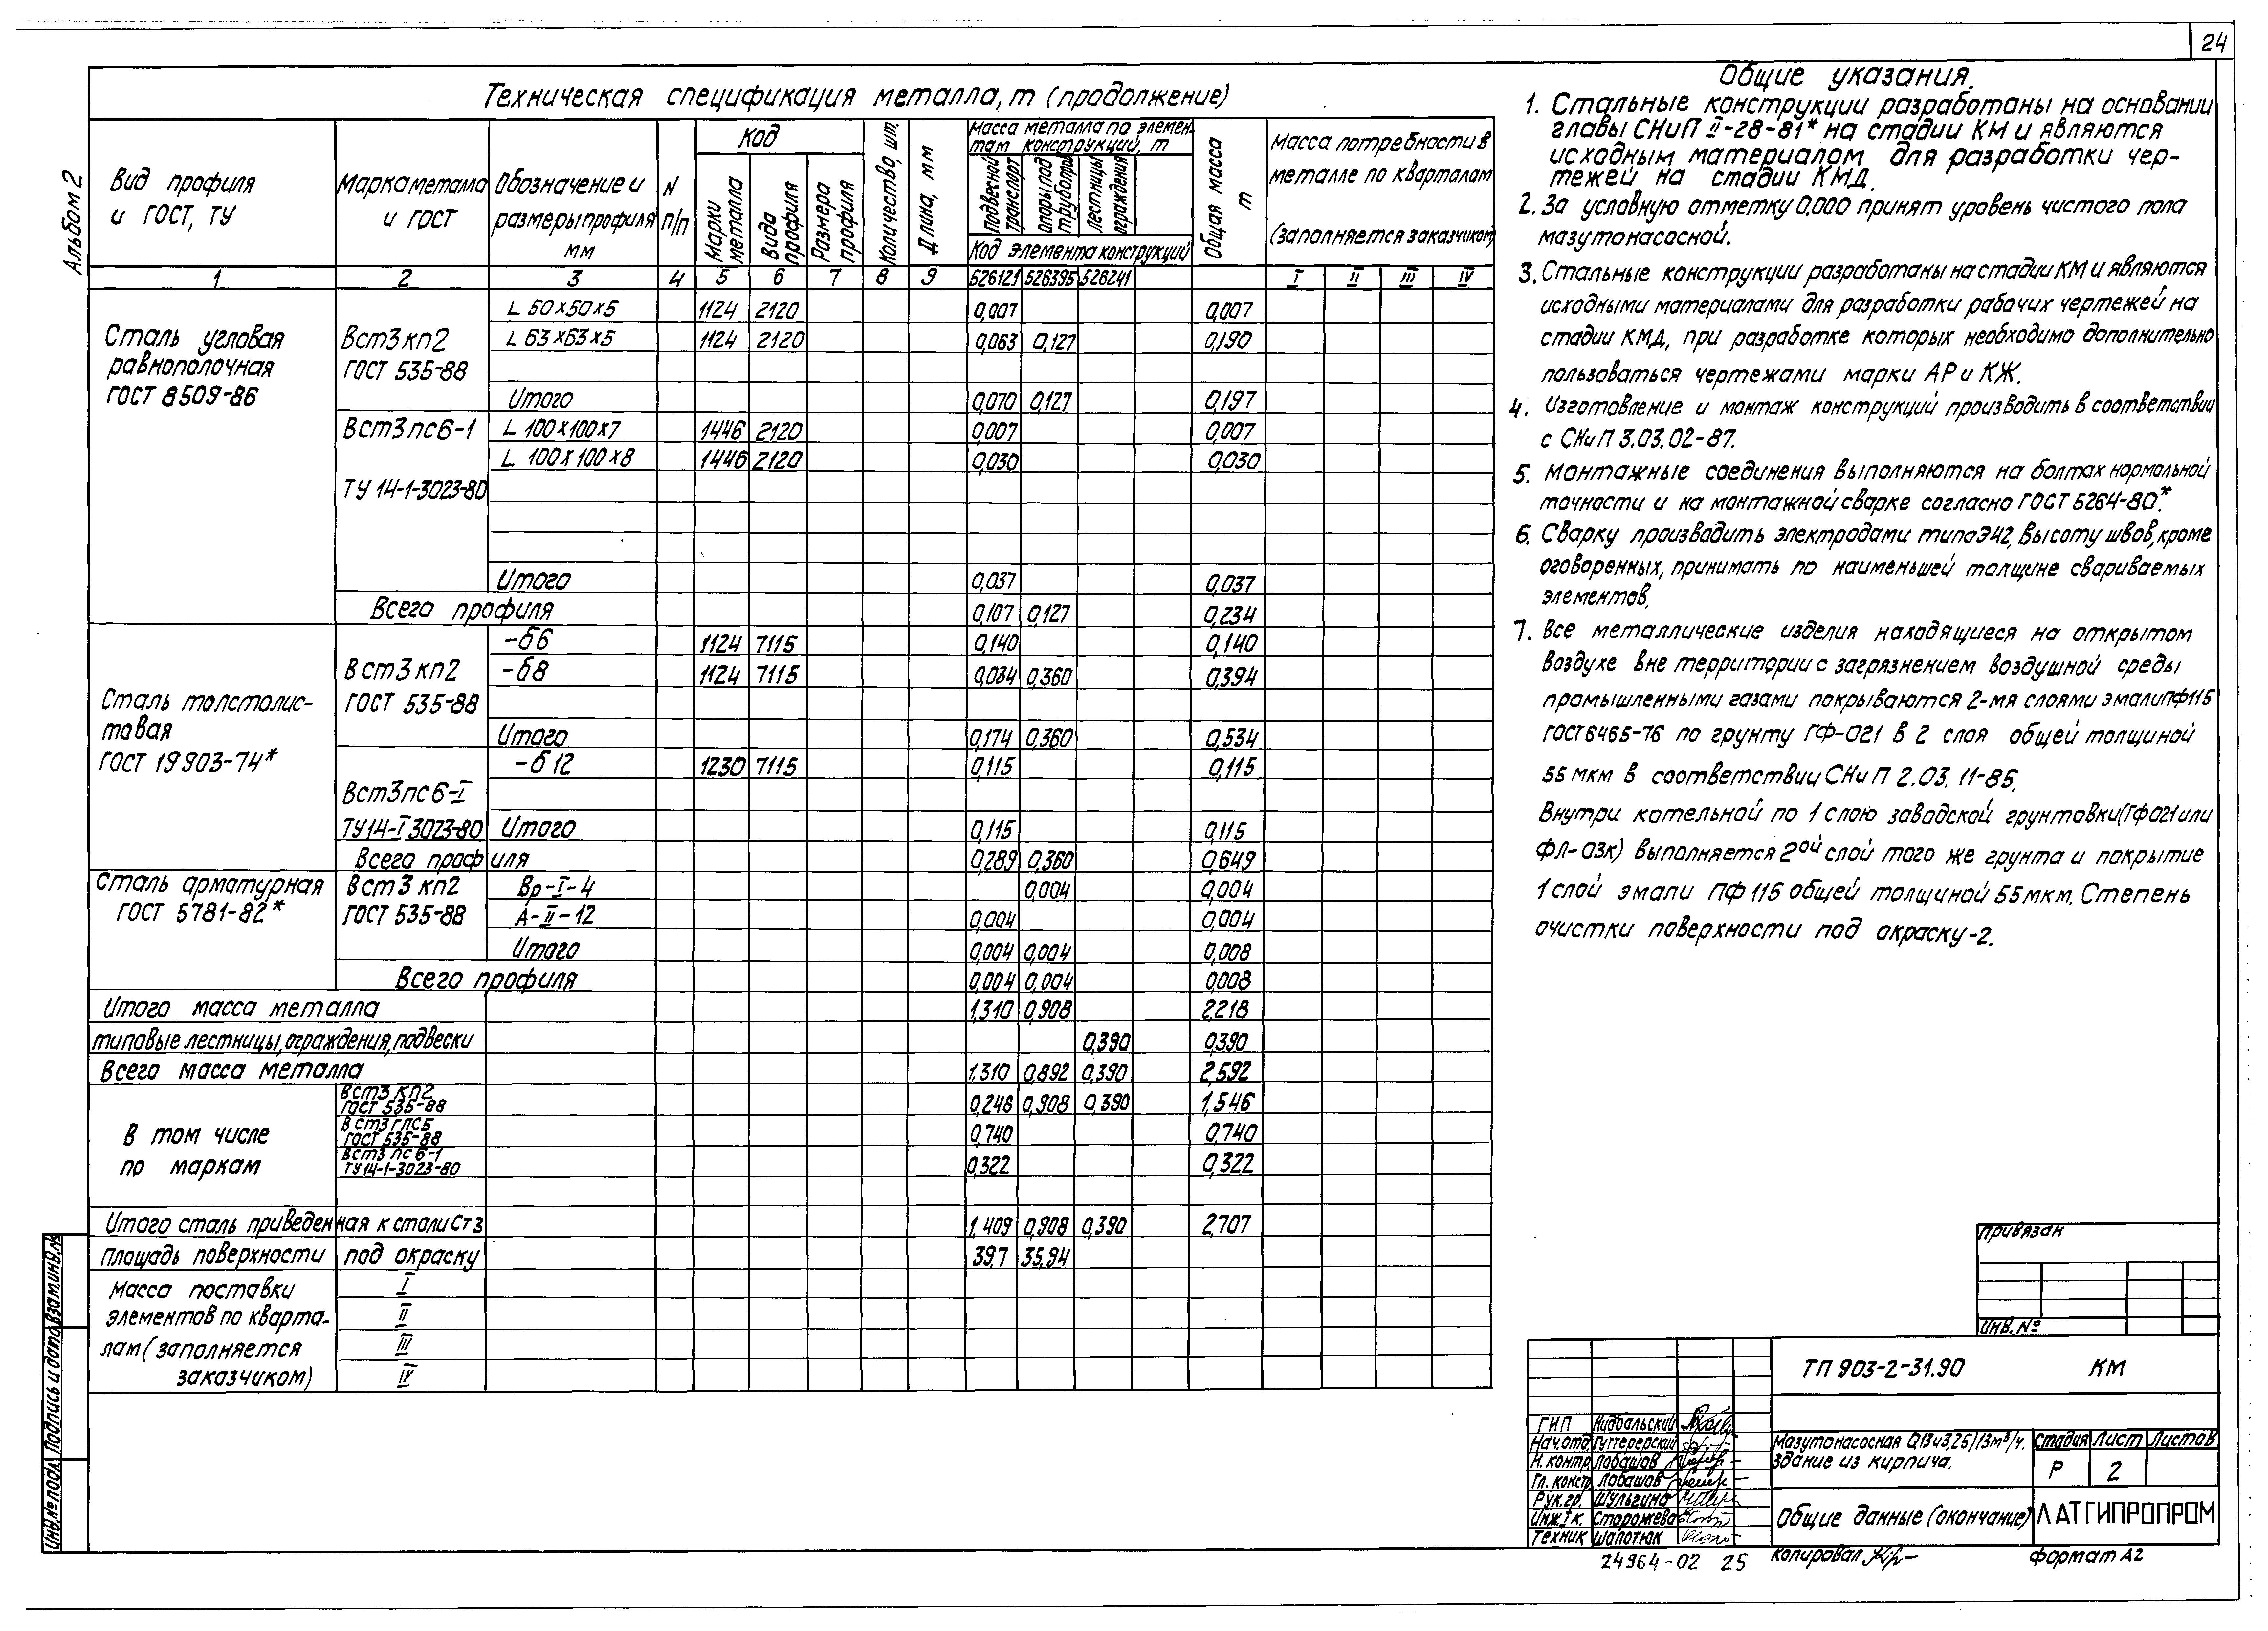 24
Альбом 2
Техническая спецификация металла, т (продолжение)
Вид профиля и ГОСТ, ТУ
Марка металла и ГОСТ
Обозначение и размеры профиля мм
N п/п
Код
Марки металла
Вида профиля
Размера профиля
Количество, шт.
Длина, мм
Масса металла по элементам конструкций, т
Подвесной транспорт
Опоры под трубопров
Лестницы ограждения
Код элемента конструкций
Общая масса т
Масса потребности в металле по кварталам (заполняется заказчиком)
1 2 3 4 5 6 7 8 9 526121 526395 526241 I II III IV
Сталь угловая равнополочная ГОСТ 8509-86
Вст3кп2 ГОСТ 535-88
L 50×50×5 1124 2120 0,007 0,007
L 63×63×5 1124 2120 0,063 0,127 0,190
Итого 0,070 0,127 0,197
Вст3пс6-1 ТУ 14-1-3023-80
L 100×100×7 1446 2120 0,007 0,007
L 100×100×8 1446 2120 0,030 0,030
Итого 0,037 0,037
Всего профиля 0,107 0,127 0,234
Сталь толстолистовая ГОСТ 19903-74*
Вст3кп2 ГОСТ 535-88
-δ6 1124 7115 0,140 0,140
-δ8 1124 7115 0,034 0,360 0,394
Итого 0,174 0,360 0,534
Вст3пс6-I ТУ14-I 3023-80
-δ12 1230 7115 0,115 0,115
Итого 0,115 0,115
Всего профиля 0,289 0,360 0,649
Сталь арматурная ГОСТ 5781-82*
Вст3кп2 ГОСТ 535-88
Вр-I-4 0,004 0,004
А-II-12 0,004 0,004
Итого 0,004 0,004 0,008
Всего профиля 0,004 0,004 0,008
Итого масса металла 1,310 0,908 2,218
типовые лестницы, ограждения, подвески 0,390 0,390
Всего масса металла 1,310 0,892 0,390 2,592
В том числе по маркам
Вст3кп2 ГОСТ 535-88 0,246 0,908 0,390 1,546
Вст3гпс5 ГОСТ 535-88 0,740 0,740
Вст3пс6-1 ТУ14-1-3023-80 0,322 0,322
Итого сталь приведенная к стали Ст3 1,409 0,908 0,390 2,707
Площадь поверхности под окраску 39,7 35,94
Масса поставки элементов по кварталам (заполняется заказчиком)
I
II
III
IV
Общие указания.
1. Стальные конструкции разработаны на основании
главы СНиП II-28-81* на стадии КМ и являются
исходным материалом для разработки чер-
тежей на стадии КМД.
2. За условную отметку 0.000 принят уровень чистого пола
мазутонасосной.
3. Стальные конструкции разработаны на стадии КМ и являются
исходными материалами для разработки рабочих чертежей на
стадии КМД, при разработке которых необходимо дополнительно
пользоваться чертежами марки АР и КЖ.
4. Изготовление и монтаж конструкций производить в соответствии
с СНиП 3.03.02-87.
5. Монтажные соединения выполняются на болтах нормальной
точности и на монтажной сварке согласно ГОСТ 5264-80*.
6. Сварку производить электродами типа Э42. Высоту швов, кроме
оговоренных, принимать по наименьшей толщине свариваемых
элементов.
7. Все металлические изделия находящиеся на открытом
воздухе вне территории с загрязнением воздушной среды
промышленными газами покрываются 2-мя слоями эмали ПФ115
ГОСТ 6465-76 по грунту ГФ-021 в 2 слоя общей толщиной
55 мкм в соответствии СНиП 2.03.11-85.
Внутри котельной по 1 слою заводской грунтовки (ГФ021 или
ФЛ-03к) выполняется 2ой слой того же грунта и покрытие
1 слой эмали ПФ 115 общей толщиной 55 мкм. Степень
очистки поверхности под окраску-2.
Привязан
Инв. №
ТП 903-2-31.90 КМ
ГИП Нидбальский
Нач.отд. Гуттерерский
Н.контр. Лобашов
Гл. констр. Лобашов
Рук.гр. Шульгина
Инж.Iк. Сторожева
Техник Шапотюк
Мазутонасосная Q13и3,25/13м³/ч.
Здание из кирпича.
Стадия Лист Листов
Р 2
Общие данные (окончание)
ЛАТГИПРОПРОМ
24964-02 25
Копировал
Формат А2
Инв.№ подл. Подпись и дата Взам.инв.№